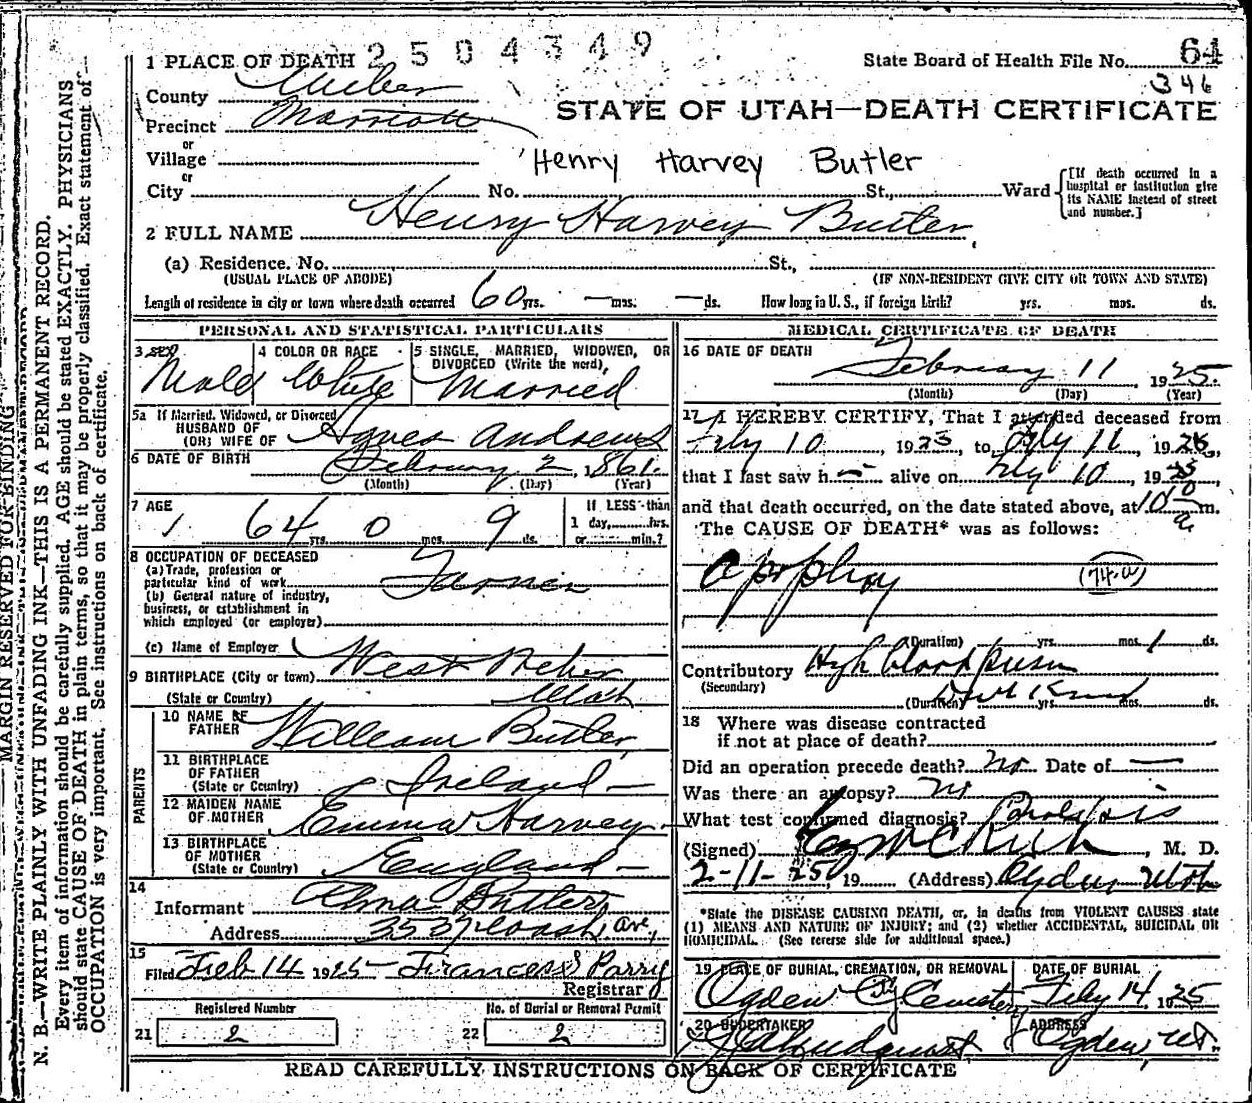 2504349
State Board of Health File No. 64
346
1 PLACE OF DEATH
County Weber
STATE OF UTAH—DEATH CERTIFICATE
Precinct Marriott
or
Village
or
Henry Harvey Butler
City No. St., Ward
[If death occurred in a hospital or institution give its NAME instead of street and number.]
2 FULL NAME Henry Harvey Butler
(a) Residence. No. St.,
(USUAL PLACE OF ABODE) (IF NON-RESIDENT GIVE CITY OR TOWN AND STATE)
Length of residence in city or town where death occurred 60 yrs. — mos. — ds. How long in U. S., if foreign birth? yrs. mos. ds.
PERSONAL AND STATISTICAL PARTICULARS
3 SEX Male
4 COLOR OR RACE White
5 SINGLE, MARRIED, WIDOWED, OR DIVORCED (Write the word), Married
5a If Married, Widowed, or Divorced
HUSBAND OF
(OR) WIFE OF Agnes Andrews
6 DATE OF BIRTH February 2, 1861
(Month) (Day) (Year)
7 AGE 64 yrs. 0 mos. 9 ds.
If LESS than
1 day, hrs.
or min.?
8 OCCUPATION OF DECEASED
(a) Trade, profession or
particular kind of work Farmer
(b) General nature of industry,
business, or establishment in
which employed (or employer)
(c) Name of Employer
9 BIRTHPLACE (City or town) West Weber
(State or Country) Utah
PARENTS
10 NAME OF FATHER William Butler
11 BIRTHPLACE OF FATHER (State or Country) Ireland —
12 MAIDEN NAME OF MOTHER Emma Harvey
13 BIRTHPLACE OF MOTHER (State or Country) England —
14
Informant Butler
Address Ave,
15
Filed Feb 14 1925 Francess Parry
Registrar
Registered Number
21 2
No. of Burial or Removal Permit
22 2
MEDICAL CERTIFICATE OF DEATH
16 DATE OF DEATH February 11, 1925.
(Month) (Day) (Year)
17 I HEREBY CERTIFY, That I attended deceased from
Feby 10, 1925, to Feby 11, 1925,
that I last saw h— alive on Feby 10, 1925,
and that death occurred, on the date stated above, at 10 a m.
The CAUSE OF DEATH* was as follows:
Apoplexy (74-a)
(Duration) yrs. mos. 1 ds.
Contributory High blood pressure
(Secondary)
(Duration) Don't Know yrs. mos. ds.
18 Where was disease contracted
if not at place of death?
Did an operation precede death? no Date of —
Was there an autopsy? no
What test confirmed diagnosis?
(Signed) , M. D.
2-11-25, 19 (Address) Ogden Utah
*State the DISEASE CAUSING DEATH, or, in deaths from VIOLENT CAUSES state
(1) MEANS AND NATURE OF INJURY; and (2) whether ACCIDENTAL, SUICIDAL OR
HOMICIDAL. (See reverse side for additional space.)
19 PLACE OF BURIAL, CREMATION, OR REMOVAL
Ogden City Cemetery
DATE OF BURIAL
Feby 14, 1925
20 UNDERTAKER
Lindquist
ADDRESS
Ogden, Ut.
READ CAREFULLY INSTRUCTIONS ON BACK OF CERTIFICATE
MARGIN RESERVED FOR BINDING
N. B.—WRITE PLAINLY WITH UNFADING INK—THIS IS A PERMANENT RECORD.
Every item of information should be carefully supplied. AGE should be stated EXACTLY. PHYSICIANS
should state CAUSE OF DEATH in plain terms, so that it may be properly classified. Exact statement of
OCCUPATION is very important. See instructions on back of certificate.